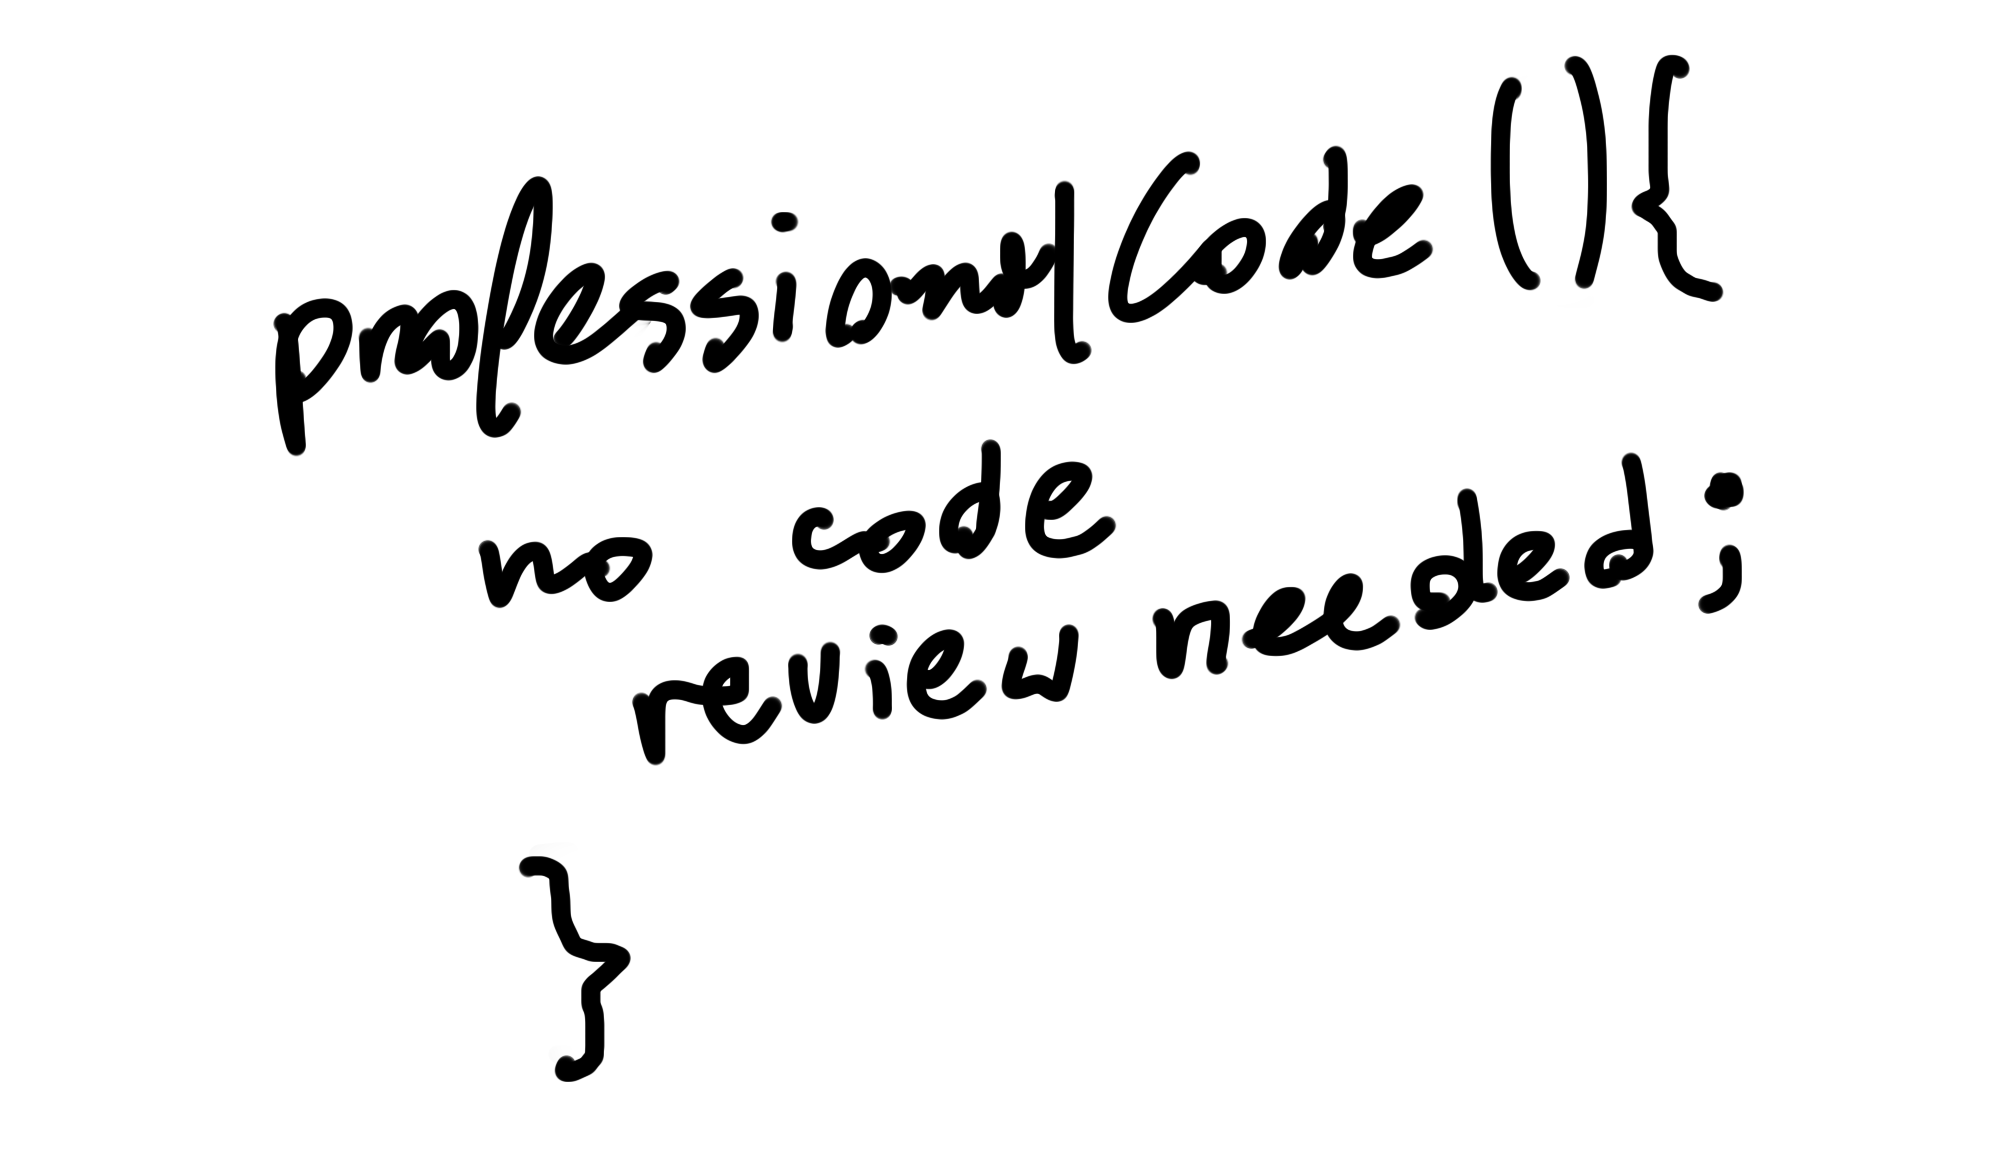 professionalCode(){
no code
review needed;
}